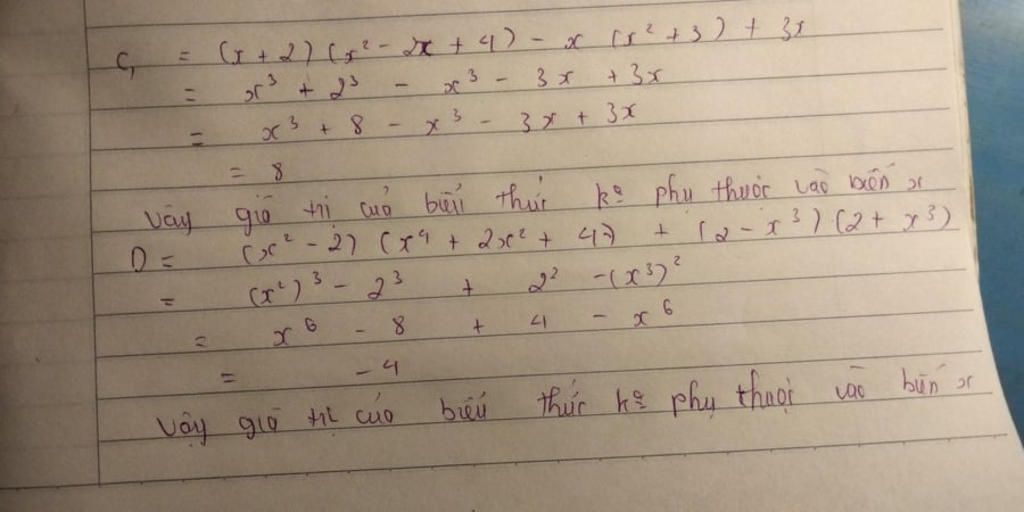 C, = (x + 2) (x² - 2x + 4) - x (x² + 3) + 3x
= x³ + 2³ - x³ - 3x + 3x
= x³ + 8 - x³ - 3x + 3x
= 8
Vậy giá trị của biểu thức k° phụ thuộc vào biến x
D = (x² - 2) (x⁴ + 2x² + 4) + (2 - x³) (2 + x³)
= (x²)³ - 2³ + 2² - (x³)²
= x⁶ - 8 + 4 - x⁶
= - 4
Vậy giá trị của biểu thức k° phụ thuộc vào biến x